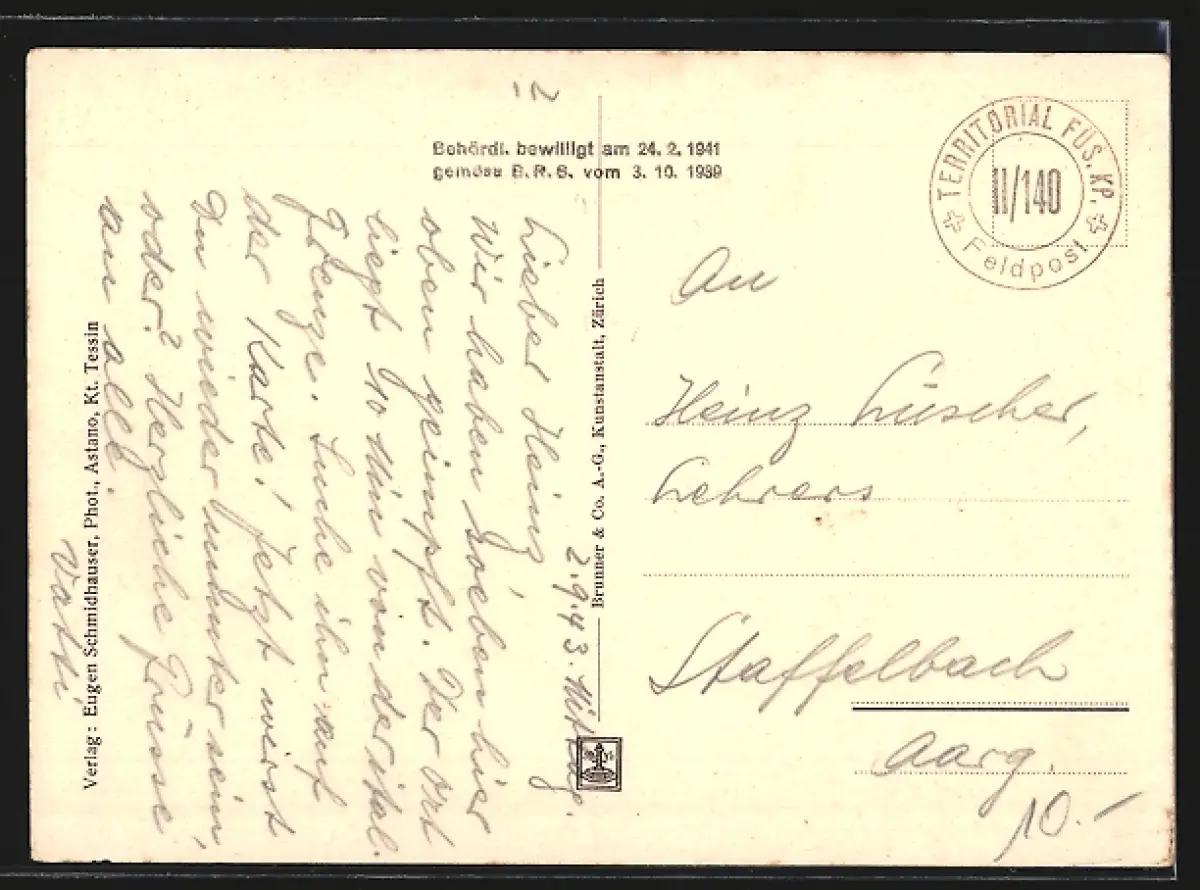 2
Behördl. bewilligt am 24. 2. 1941
gemäss B. R. B. vom 3. 10. 1939
TERRITORIAL FÜS. KP.
II/140
Feldpost
2.9.43. Mittag.
Lieber Heinz!
Wir haben soeben hier
oben geimpft. Der Ort
liegt 40 Min von der ital.
Grenze. Suche ihn auf
der Karte! Jetzt wirst
Du wieder munter sein,
oder? Herzliche Grüsse
an alle.
Vatti
An
Heinz Lüscher,
Lehrers
Staffelbach
Aarg.
10.-
Brunner & Co. A.-G., Kunstanstalt, Zürich
Verlag: Eugen Schmidhauser, Phot., Astano, Kt. Tessin